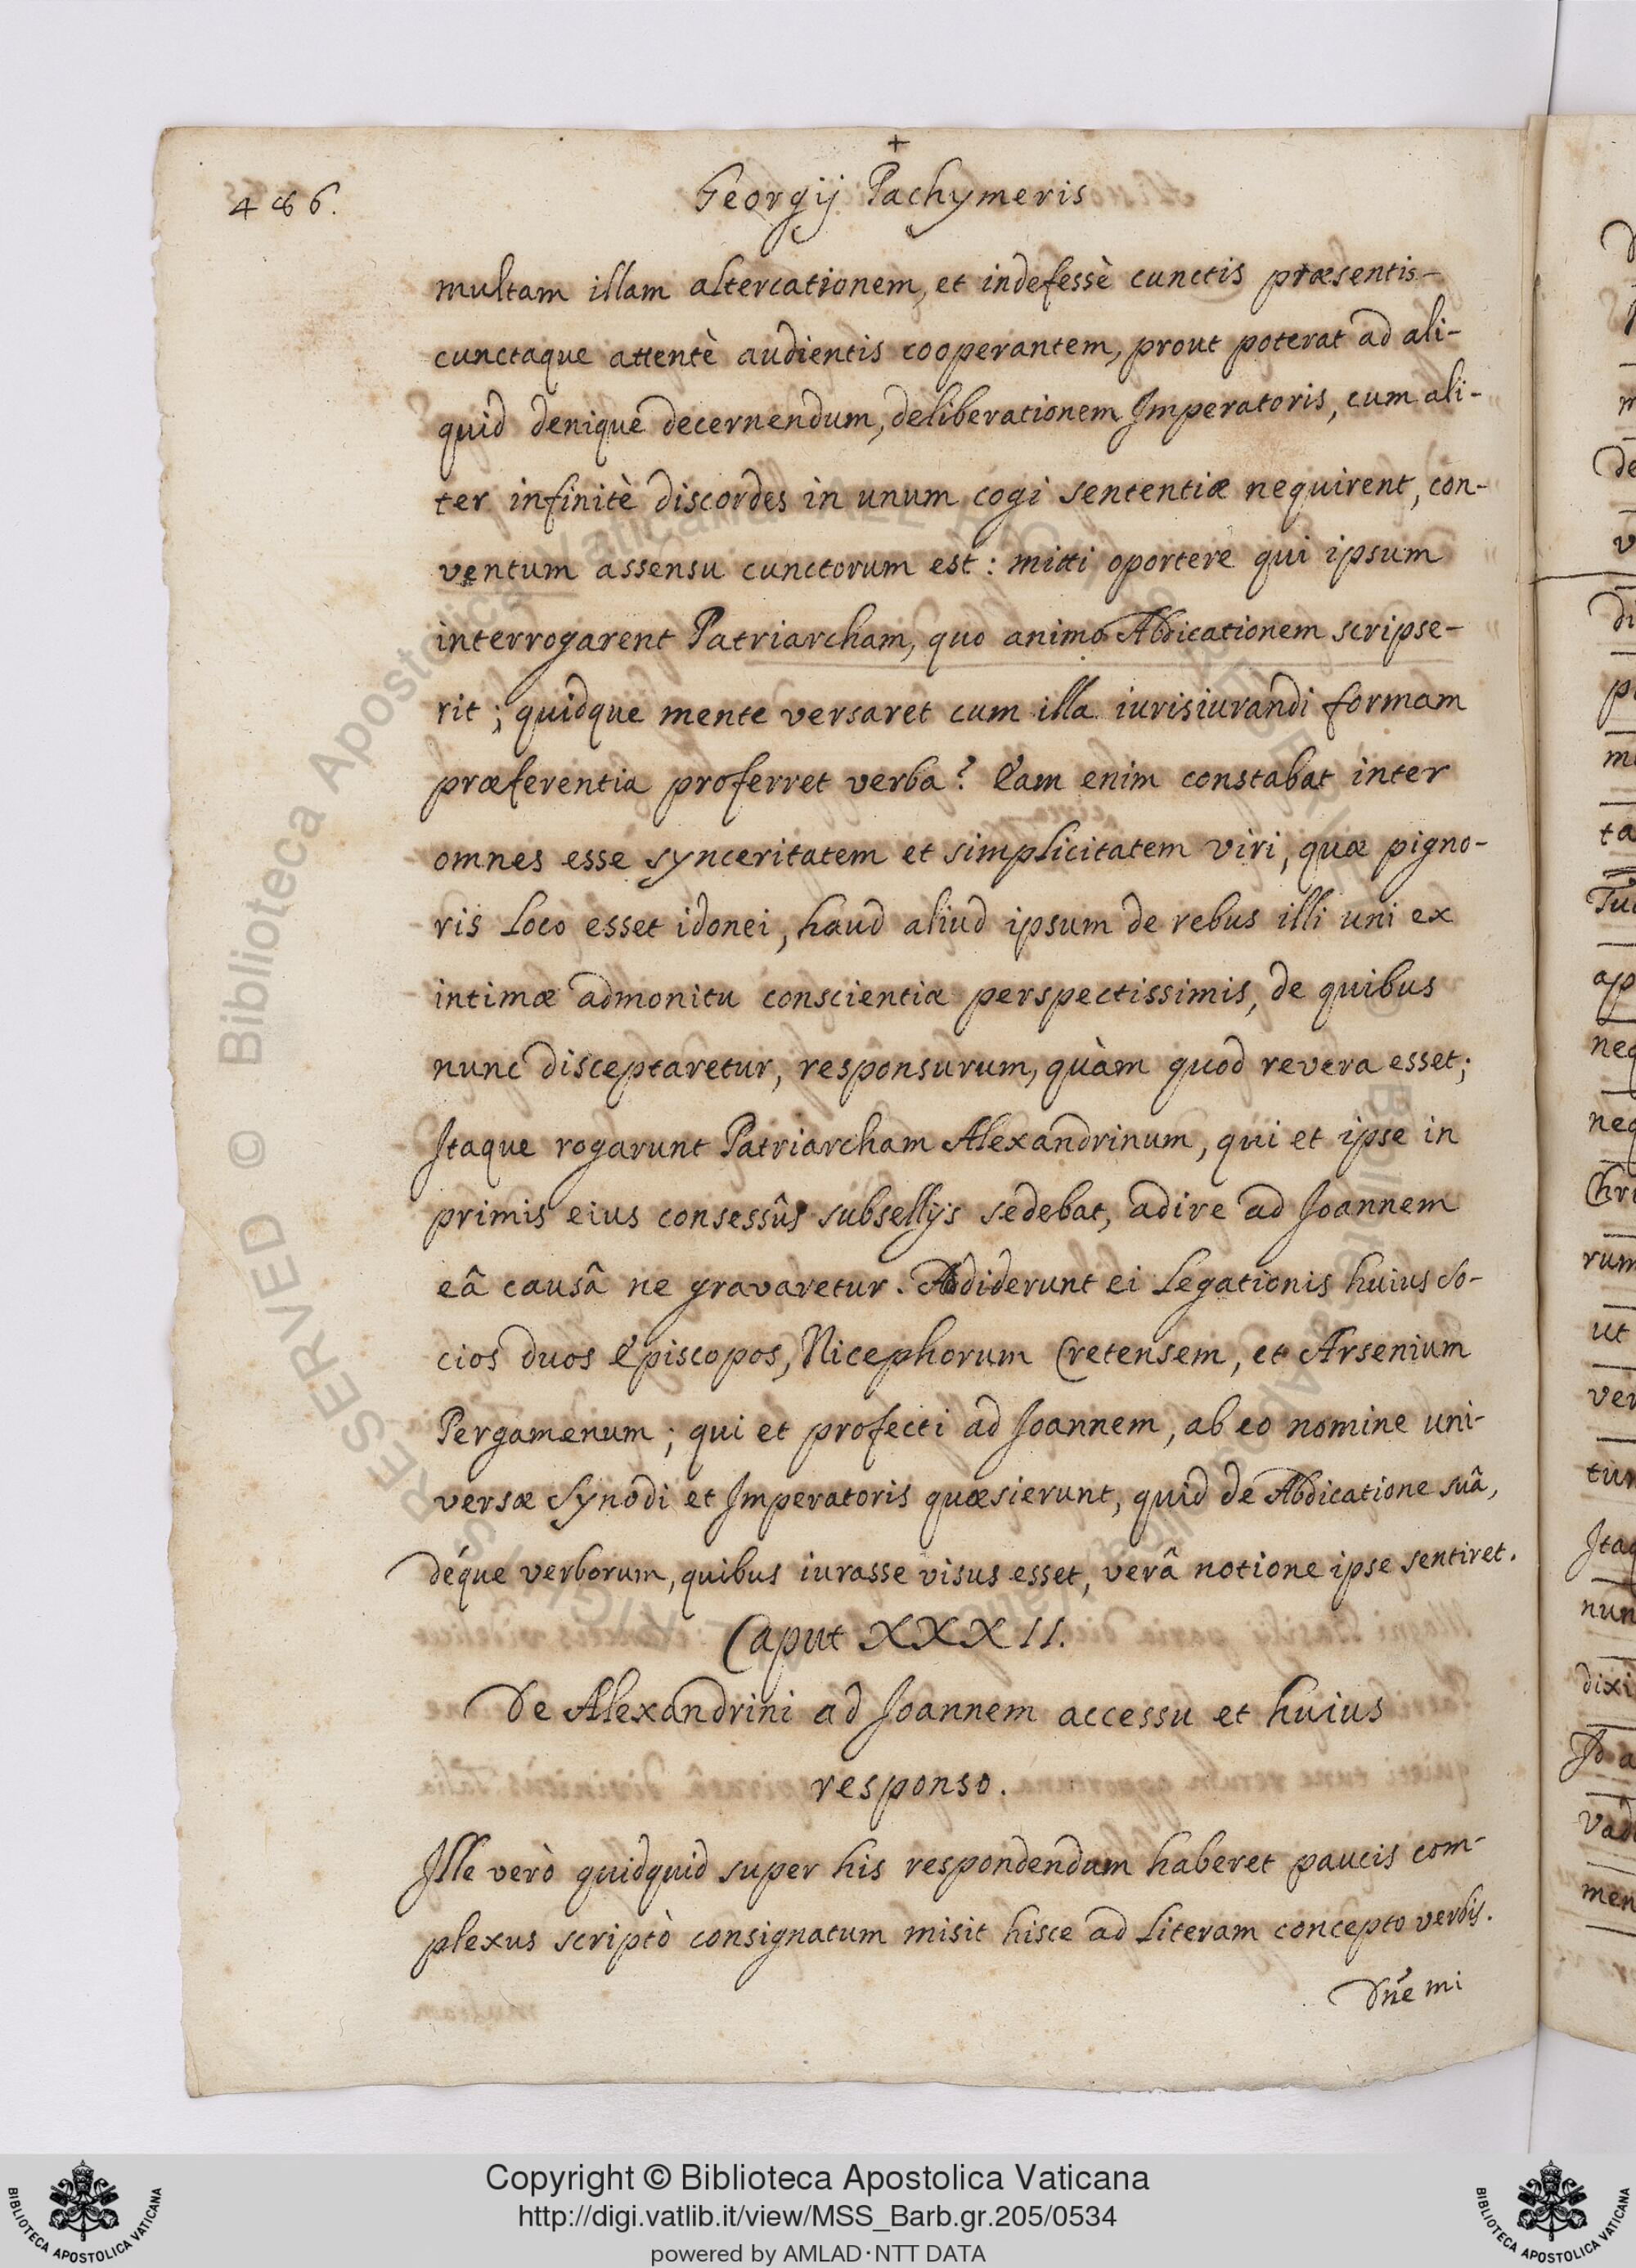 +
486.
Georgij Pachymeris
multam illam altercationem, et indefessè cunctis præsentis
cunctaque attentè audientis cooperantem, prout poterat ad ali-
quid denique decernendum, deliberationem Imperatoris, cum ali-
ter infinitè discordes in unum cogi sententiæ nequirent, con-
ventum assensu cunctorum est: mitti oportere qui ipsum
interrogarent Patriarcham, quo animo Abdicationem scripse-
rit; quidque mente versaret cum illa iurisiurandi formam
præferentia proferret verba? Eam enim constabat inter
omnes esse synceritatem et simplicitatem viri, quæ pigno-
ris loco esset idonei, haud aliud ipsum de rebus illi uni ex
intimæ admonitu conscientiæ perspectissimis, de quibus
nunc disceptaretur, responsurum, quàm quod revera esset;
Itaque rogarunt Patriarcham Alexandrinum, qui et ipse in
primis eius consessûs subsellijs sedebat, adire ad Joannem
eâ causâ ne gravaretur. Addiderunt ei Legationis huius so-
cios duos Episcopos, Nicephorum Cretensem, et Arsenium
Pergamenum; qui et profecti ad Joannem, ab eo nomine uni-
versæ Synodi et Imperatoris quæsierunt, quid de Abdicatione suâ,
déque verborum, quibus iurasse visus esset, verâ notione ipse sentiret.
Caput XXXII.
De Alexandrini ad Joannem accessu et huius
responso.
Ille verò quidquid super his respondendum haberet paucis com-
plexus scriptò consignatum misit hisce ad literam concepto verbis.
Dñe mi
Copyright © Biblioteca Apostolica Vaticana
http://digi.vatlib.it/view/MSS_Barb.gr.205/0534
powered by AMLAD·NTT DATA
BIBLIOTECA APOSTOLICA VATICANA
BIBLIOTECA APOSTOLICA VATICANA